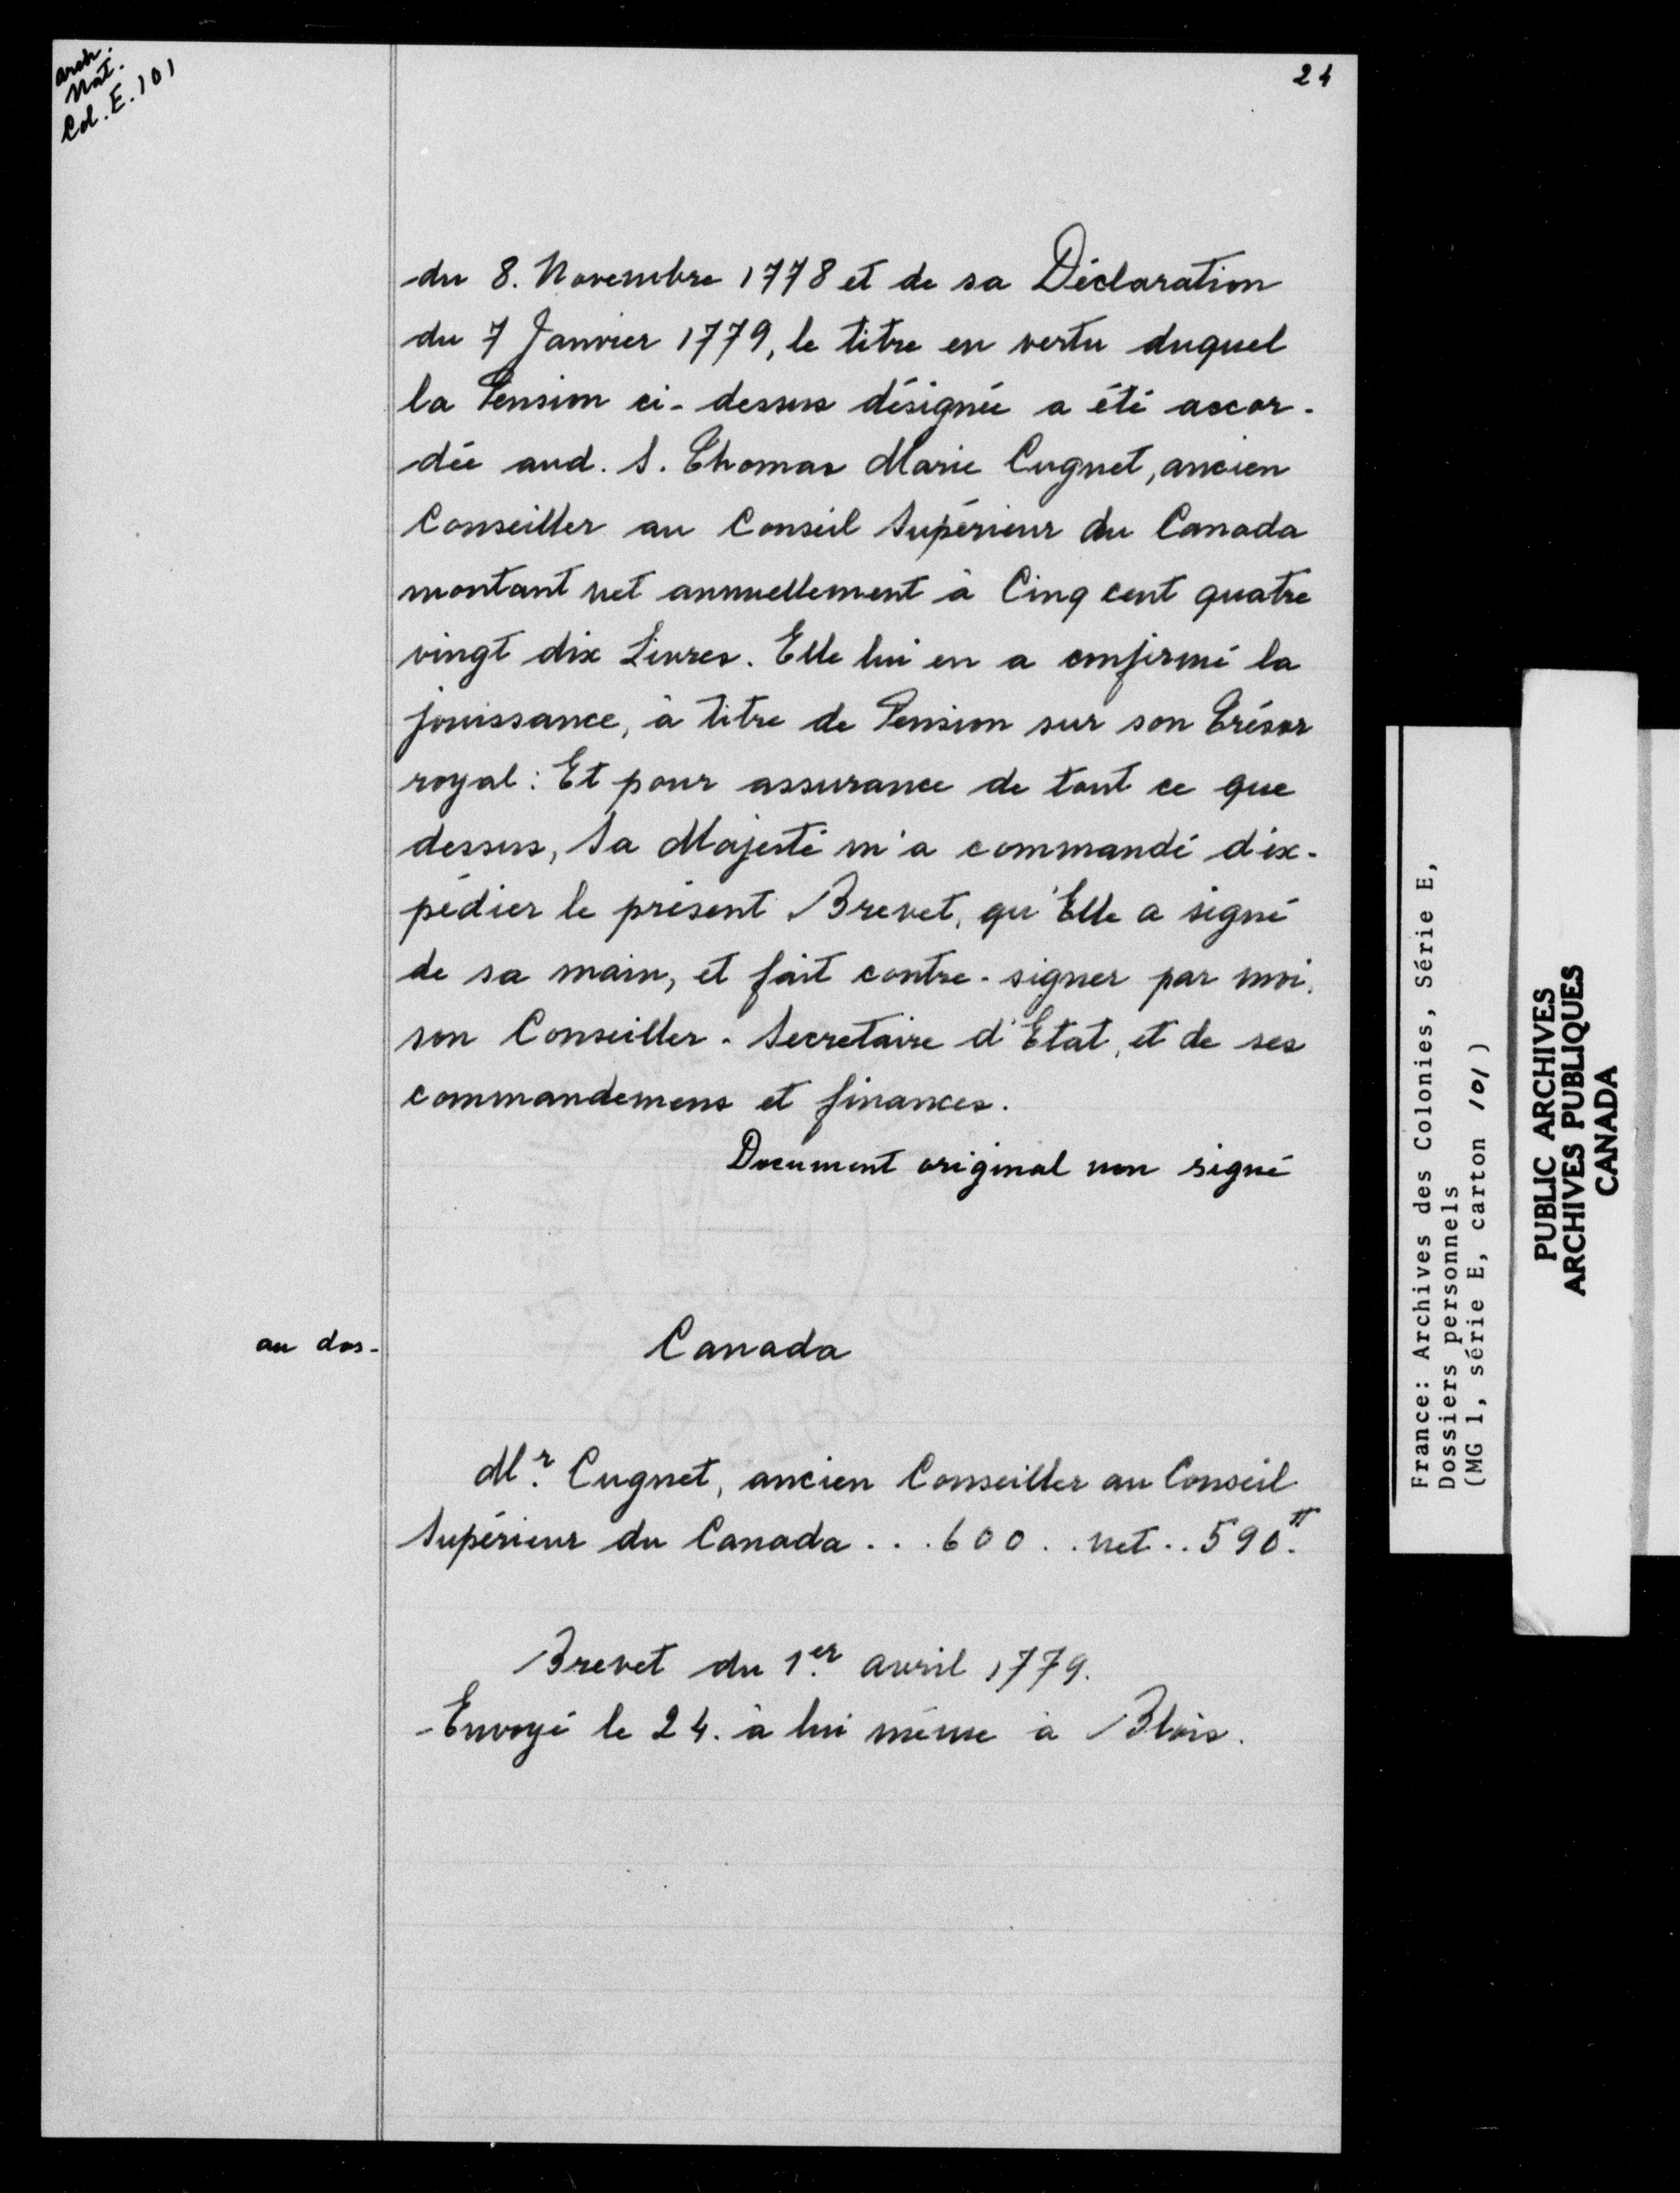 arch.
Nat.
Col. E. 101
24
du 8. Novembre 1778 et de sa Déclaration
du 7 Janvier 1779, le titre en vertu duquel
la Pension ci-dessus désignée a été accor-
dée aud. S. Thomas Marie Cugnet, ancien
Conseiller au Conseil Supérieur du Canada
montant net annuellement à Cinq cent quatre
vingt dix Livres. Elle lui en a confirmé la
jouissance, à titre de Pension sur son Trésor
royal : Et pour assurance de tout ce que
dessus, Sa Majesté m'a commandé d'ex-
pédier le présent Brevet, qu'Elle a signé
de sa main, et fait contre-signer par moi,
son Conseiller-Secretaire d'Etat, et de ses
commandemens et finances.
Document original non signé
au dos-
Canada
Mr. Cugnet, ancien Conseiller au Conseil
Supérieur du Canada . . . 600 . . net . . 590.₶
Brevet du 1.er avril 1779.
Envoyé le 24. à lui même à Blois.
France: Archives des Colonies, Série E,
Dossiers personnels
(MG 1, série E, carton 101)
PUBLIC ARCHIVES
ARCHIVES PUBLIQUES
CANADA